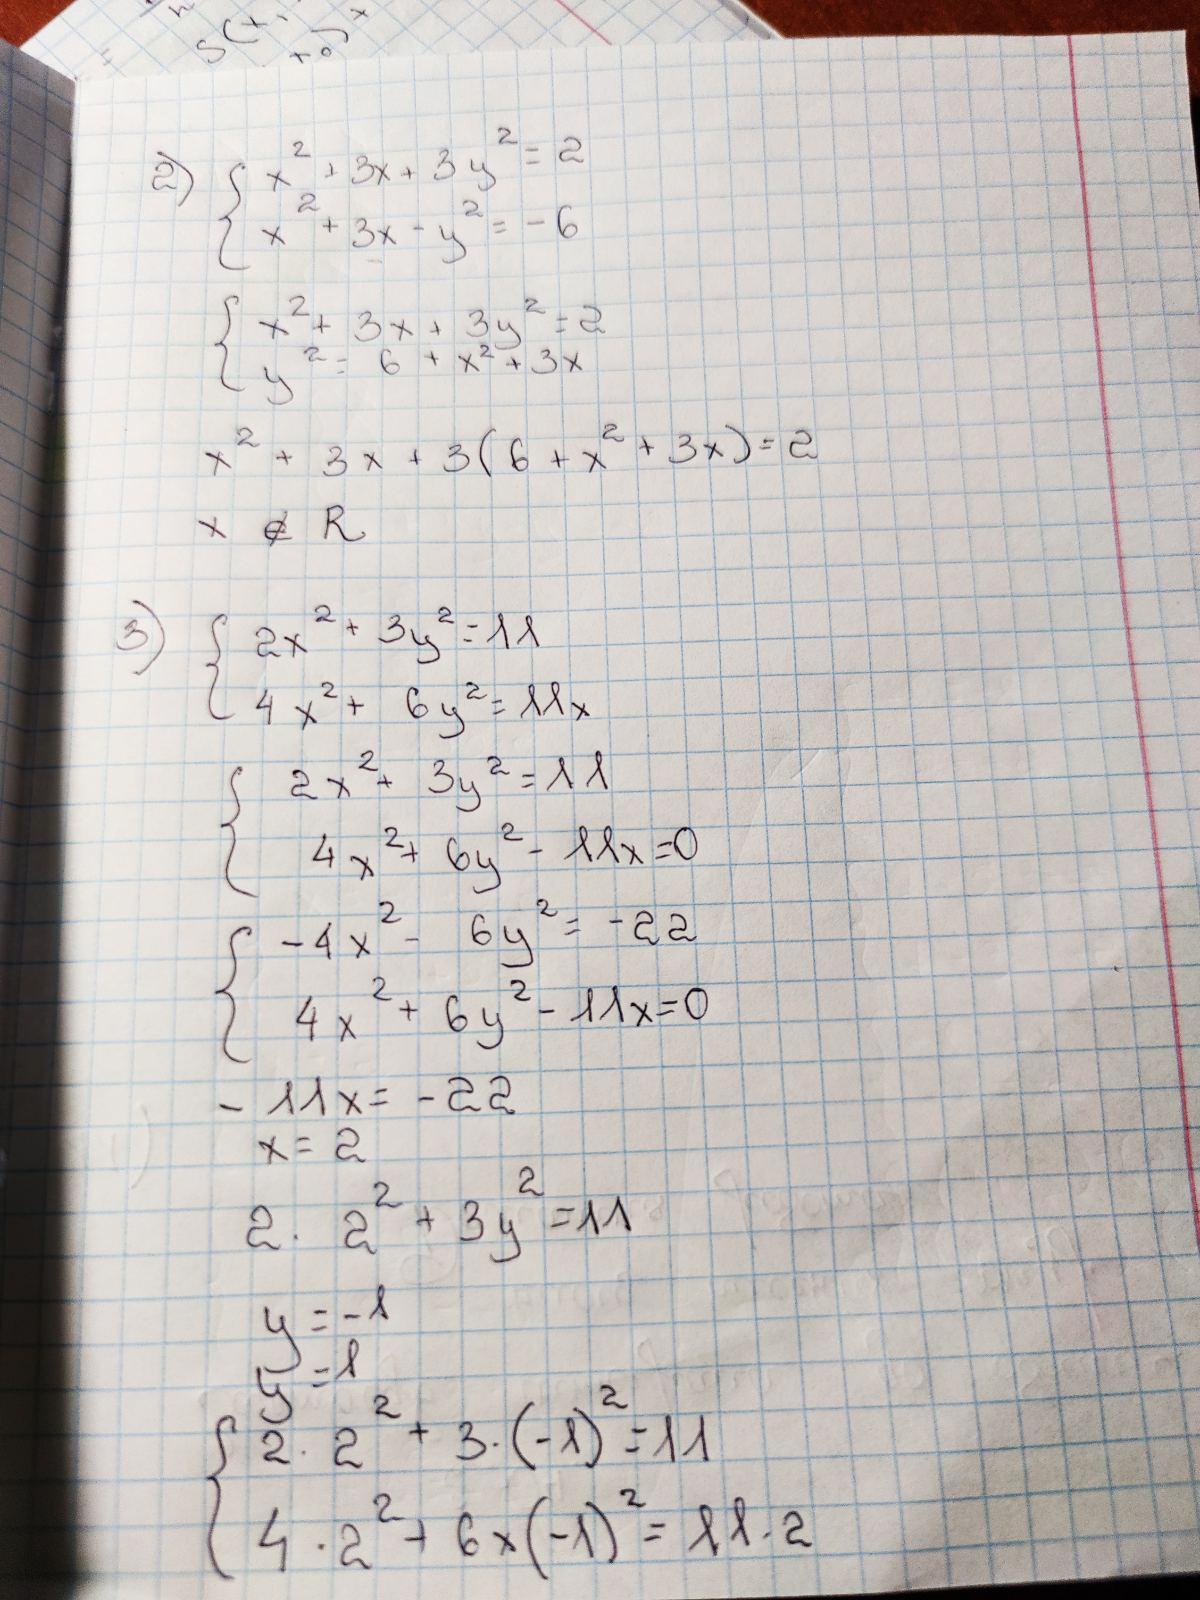 S(x
+0) x
2) { x² + 3x + 3y² = 2
x² + 3x - y² = -6
{ x² + 3x + 3y² = 2
y² = 6 + x² + 3x
x² + 3x + 3(6 + x² + 3x) = 2
x ∉ R
3) { 2x² + 3y² = 11
4x² + 6y² = 11x
{ 2x² + 3y² = 11
4x² + 6y² - 11x = 0
{ -4x² - 6y² = -22
4x² + 6y² - 11x = 0
- 11x = -22
x = 2
2 · 2² + 3y² = 11
y = -1
y = 1
{ 2 · 2² + 3 · (-1)² = 11
4 · 2² + 6 x (-1)² = 11 · 2